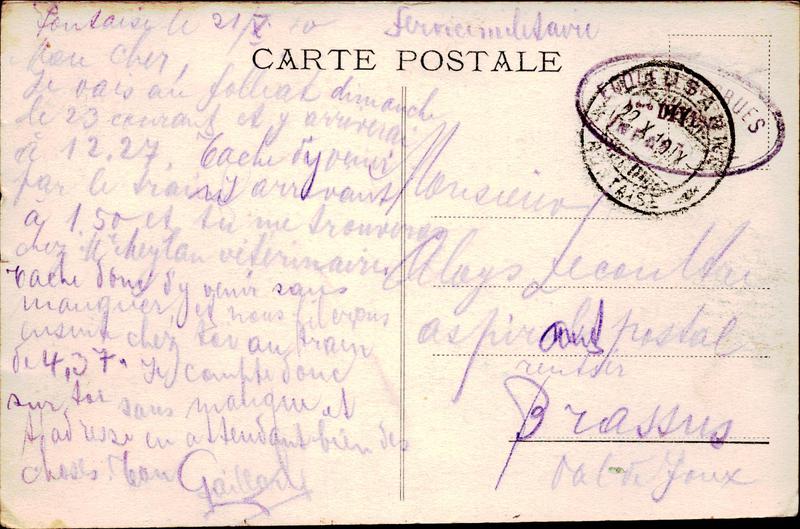 Fontaise le 21/X 10 Service militaire
CARTE POSTALE
Mon cher,
Je vais au folliat dimanche
le 23 courant et y arriverai
à 12.27. Tâche d'y venir
par le train arrivant
à 1.50 et tu me trouveras
chez Mr Cheylan vétérinaire
Tâche donc d'y venir sans
manquer, et nous irons
ensuite chez toi au train
de 4,37. Je compte donc
sur toi sans manque et
t'adresse en attendant bien des
choses. Ton Gaillard
Monsieur
Aloys Lecoultre
aspirant postal
rentier
Brassus
Val de Joux
22 X 10